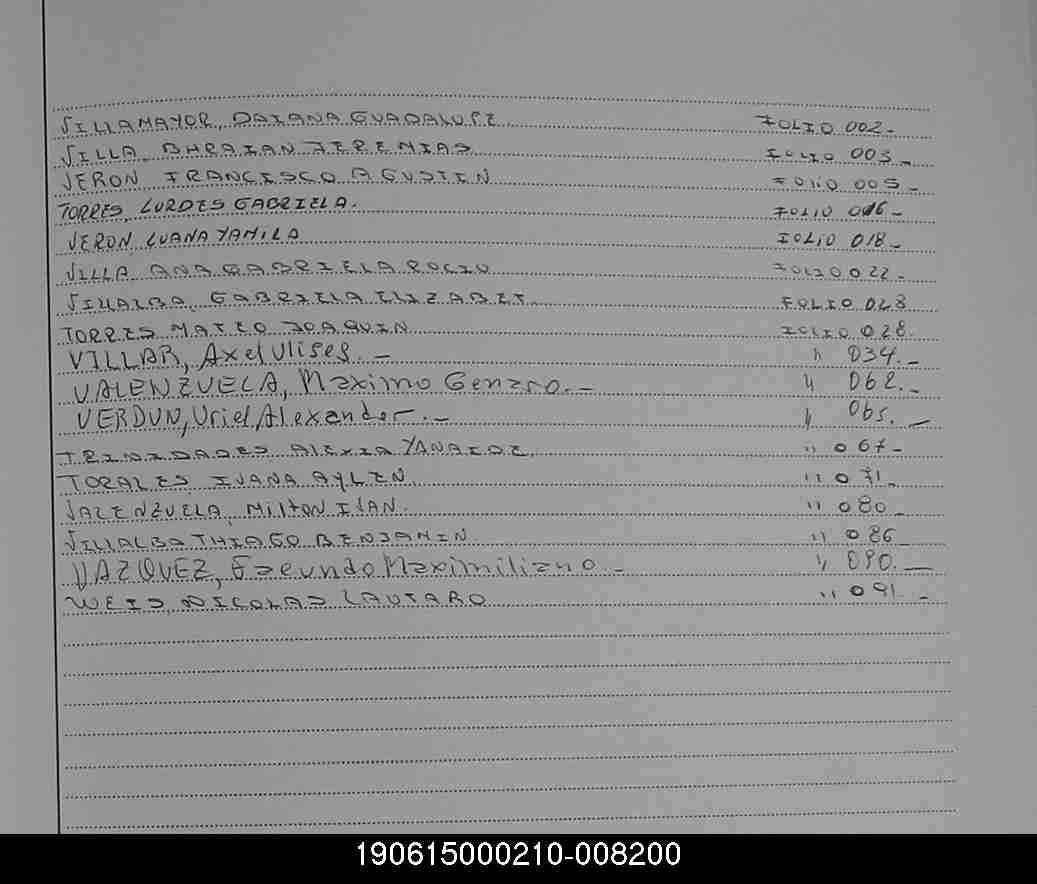 VILLAMAYOR, DAIANA GUADALUPE FOLIO 002-
VILLA BHRAIAN JEREMIAS FOLIO 003-
VERON FRANCISCO AGUSTIN FOLIO 005-
TORRES, LURDES GABRIELA. FOLIO 016-
VERON, LUANA YAMILA FOLIO 018-
VILLA ANA GABRIELA ROCIO FOLIO 022-
VILLALBA, GABRIELA ELIZABET FOLIO 028
TORRES MATEO JOAQUIN FOLIO 028.
VILLAR, Axel Ulises.- " 034.-
VALENZUELA, Maximo Genaro.- " 062.-
VERDUN, Uriel Alexander.- " 065.-
TRINIDADES ALEXIA YANAIDE. " 067-
TORALES IVANA AYLEN " 071-
VALENZUELA, Milton IVAN. " 080-
VILLALBA THIAGO BENJAMIN " 086
VAZQUEZ, Facundo Maximiliano.- " 090.-
WEIS NICOLAS LAUTARO " 091.-
190615000210-008200